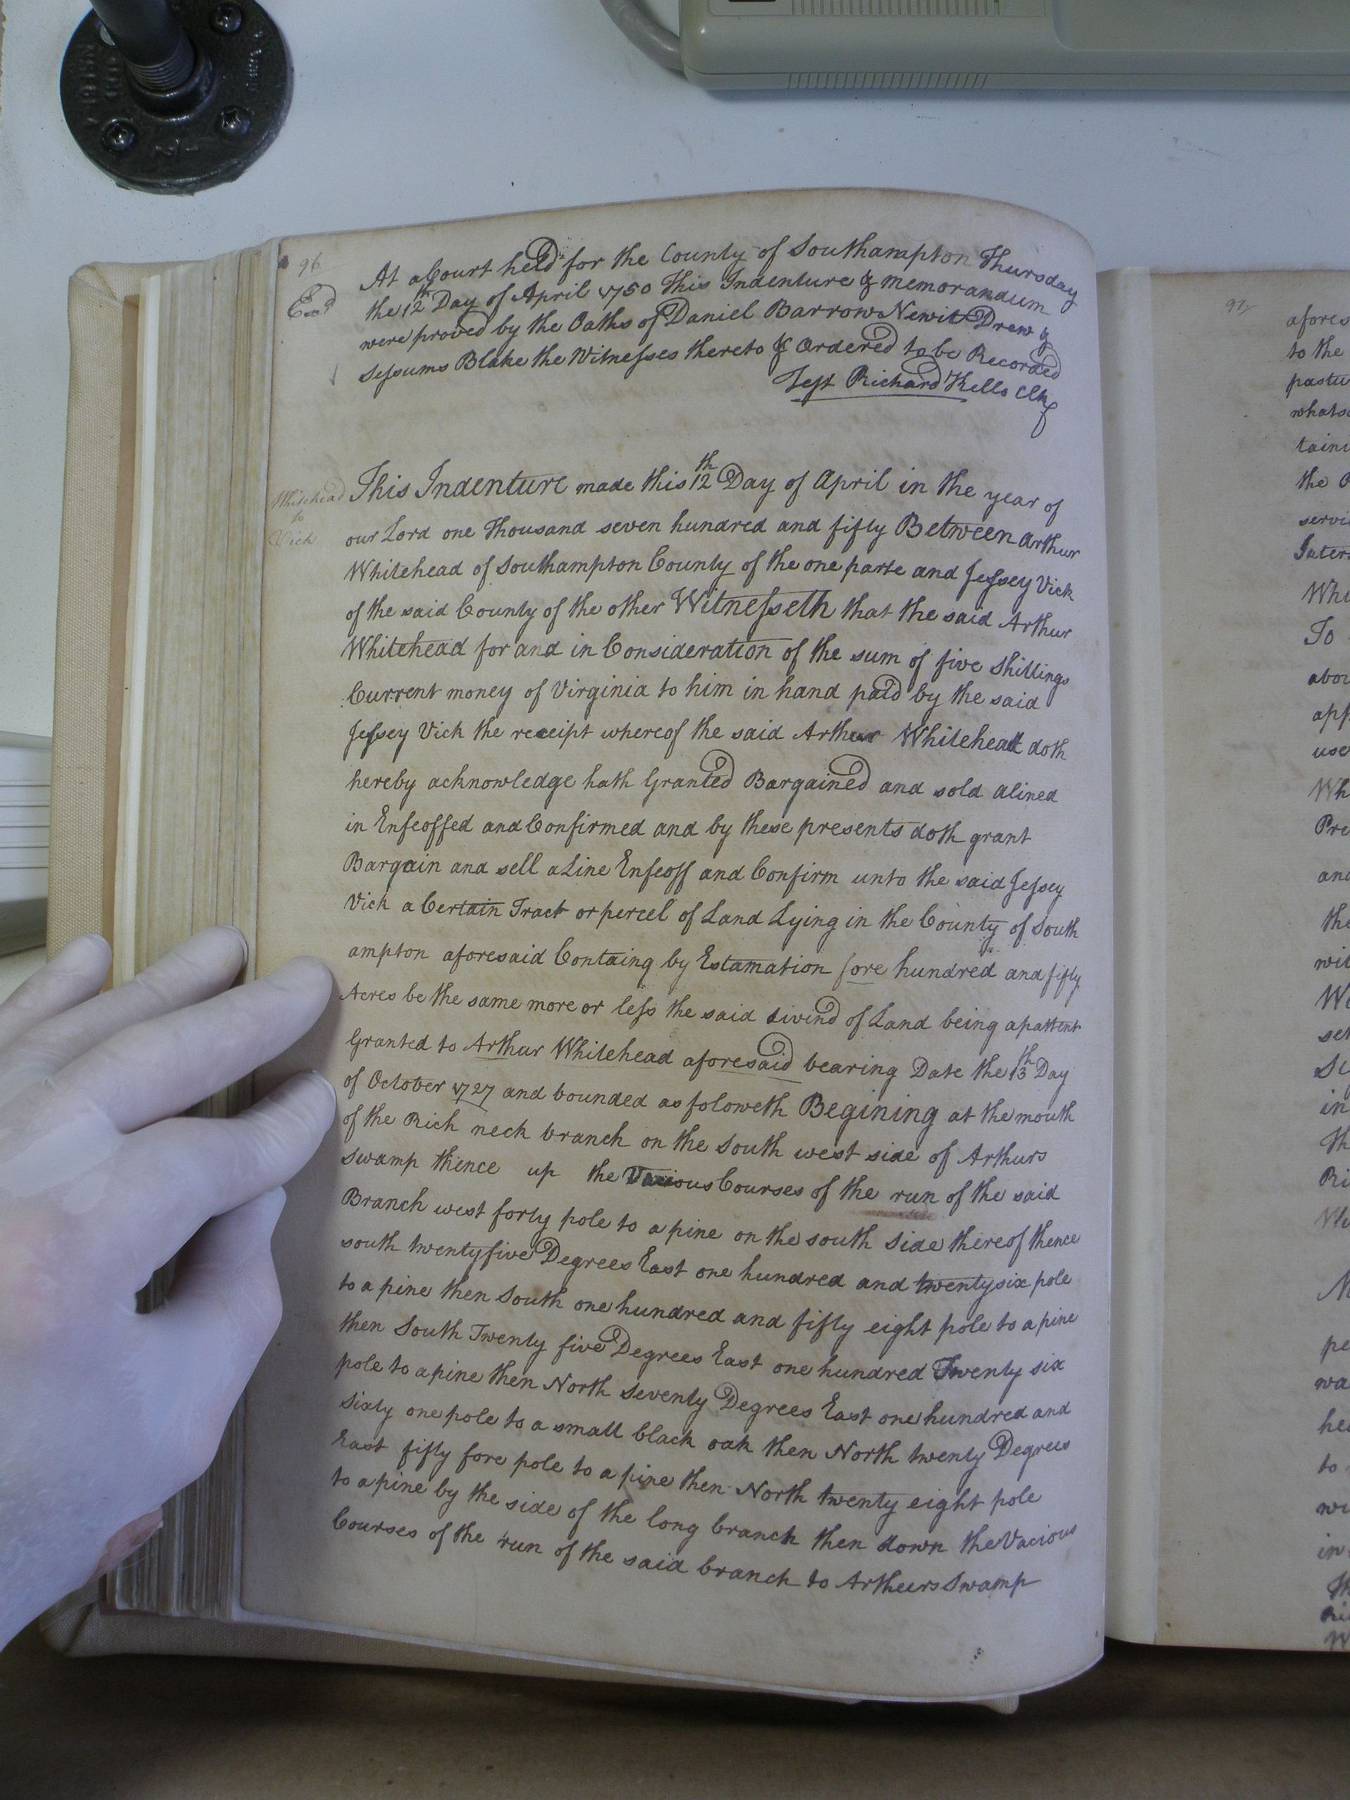 96
Exd
At a Court held for the County of Southampton Thursday
the 12th Day of April 1750 This Indenture & memorandum
were proved by the Oaths of Daniel Barrow Newit Drew &
Sessums Blake the Witnesses thereto & Ordered to be Recorded
Test Richard Kello Clk
Whitehead
to
Vick
This Indenture made this 12th Day of April in the year of
our Lord one Thousand seven hundred and fifty Between Arthur
Whitehead of Southampton County of the one parte and Jessey Vick
of the said County of the other Witnesseth that the said Arthur
Whitehead for and in Consideration of the sum of five Shillings
Current money of Virginia to him in hand paid by the said
Jessey Vick the receipt whereof the said Arthur Whitehead doth
hereby acknowledge hath Granted Bargained and sold alined
in Enfeoffed and Confirmed and by these presents doth grant
Bargain and sell aLine Enfeoff and Confirm unto the said Jessey
Vick a Certain Tract or percel of Land Lying in the County of South
ampton aforesaid Containg by Estamation fore hundred and fifty
Acres be the same more or less the said divend of Land being a pattent
Granted to Arthur Whitehead aforesaid bearing Date the 13th Day
of October 1727 and bounded as foloweth Begining at the mouth
of the Rich neck branch on the South west side of Arthurs
swamp thence up the Vacious Courses of the run of the said
Branch west forty pole to a pine on the south Side thereof thence
south twentyfive Degrees East one hundred and twentysix pole
to a pine then South one hundred and fifty eight pole to a pine
then South Twenty five Degrees East one hundred Twenty six
pole to a pine then North Seventy Degrees East one hundred and
Sixty one pole to a small black oak then North twenty Degrees
East fifty fore pole to a pine then North twenty eight pole
to a pine by the side of the long branch then down the Vacious
Courses of the run of the said branch to Artheurs Swamp
97
afores
to the
pastu
whats
tain
the
servi
Inter
Whi
To
abov
app
use
Wh
Pre
and
the
wit
We
set
in
Th
Ri
pe
wa
hea
to
wi
in